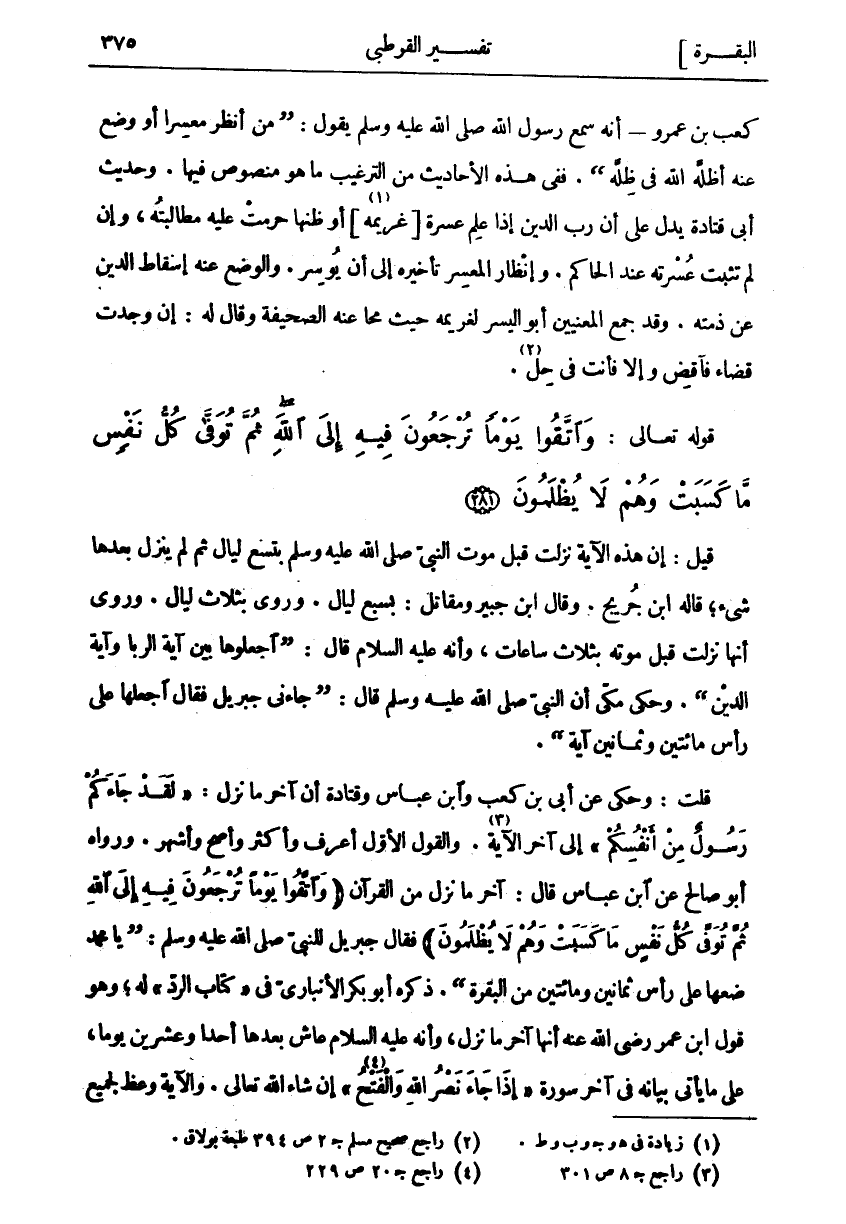 البقرة ] تفسير القرطبى ٣٧٥
كعب بن عمرو — أنه سمع رسول الله صلى الله عليه وسلم يقول : ” من أنظر معسرا أو وضع
عنه أظلَّه الله فى ظِلَّه “ . ففى هذه الأحاديث من الترغيب ما هو منصوص فيها . وحديث
أبى قتادة يدل على أن رب الدين إذا علِم عسرة [ غريمه ](١) أو ظنها حرمتْ عليه مطالبتُه ، وإن
لم تثبت عُسْرته عند الحاكم . وإنْظار المعسر تأخيره إلى أن يُوسر . والوضع عنه إسقاط الدين
عن ذمته . وقد جمع المعنيين أبو اليسر لغريمه حيث محا عنه الصحيفة وقال له : إن وجدت
قضاء فآقضِ وإلا فأنت فى حِلّ(٢) .
قوله تعالى : وَٱتَّقُوا يَوْمًا تُرْجَعُونَ فِيهِ إِلَى ٱللَّهِ ۖ ثُمَّ تُوَفَّىٰ كُلُّ نَفْسٍ
مَّا كَسَبَتْ وَهُمْ لَا يُظْلَمُونَ ٢٨١
قيل : إن هذه الآية نزلت قبل موت النبىّ صلى الله عليه وسلم بتسع ليال ثم لم ينزل بعدها
شىء ؛ قاله ابن جُريج . وقال ابن جبير ومقاتل : بسبع ليال . وروى بثلاث ليال . وروى
أنها نزلت قبل موته بثلاث ساعات ، وأنه عليه السلام قال : ” آجعلوها بين آية الربا وآية
الدَّيْن “ . وحكى مكّى أن النبىّ صلى الله عليه وسلم قال : ” جاءنى جبريل فقال آجعلها على
رأس مائتين وثمانين آية “ .
قلت : وحكى عن أبى بن كعب وآبن عباس وقتادة أن آخر ما نزل : « لَقَدْ جَاءَكُمْ
رَسُولٌ مِنْ أَنْفُسِكُمْ » إلى آخر الآية(٣) . والقول الأوّل أعرف وأكثر وأصح وأشهر . ورواه
أبو صالح عن آبن عباس قال : آخر ما نزل من القرآن ( وَٱتَّقُوا يَوْمًا تُرْجَعُونَ فِيهِ إِلَى ٱللهِ
ثُمَّ تُوَفَّى كُلُّ نَفْسٍ مَا كَسَبَتْ وَهُمْ لَا يُظْلَمُونَ ) فقال جبريل للنبىّ صلى الله عليه وسلم : ” يا محمد
ضعها على رأس ثمانين ومائتين من البقرة “ . ذكره أبو بكر الأنبارىّ فى « كتاب الردّ » له ؛ وهو
قول ابن عمر رضى الله عنه أنها آخر ما نزل ، وأنه عليه السلام عاش بعدها أحدا وعشرين يوما ،
على ما يأتى بيانه فى آخر سورة « إِذَا جَاءَ نَصْرُ اللهِ وَالْفَتْحُ(٤) » إن شاء الله تعالى . والآية وعظ لجميع
(١) زيادة فى هـ و جـ و ب و ط . (٢) راجع صحيح مسلم جـ ٢ ص ٣٩٤ طبعة بولاق .
(٣) راجع جـ ٨ ص ٣٠١ (٤) راجع جـ ٢٠ ص ٢٢٩